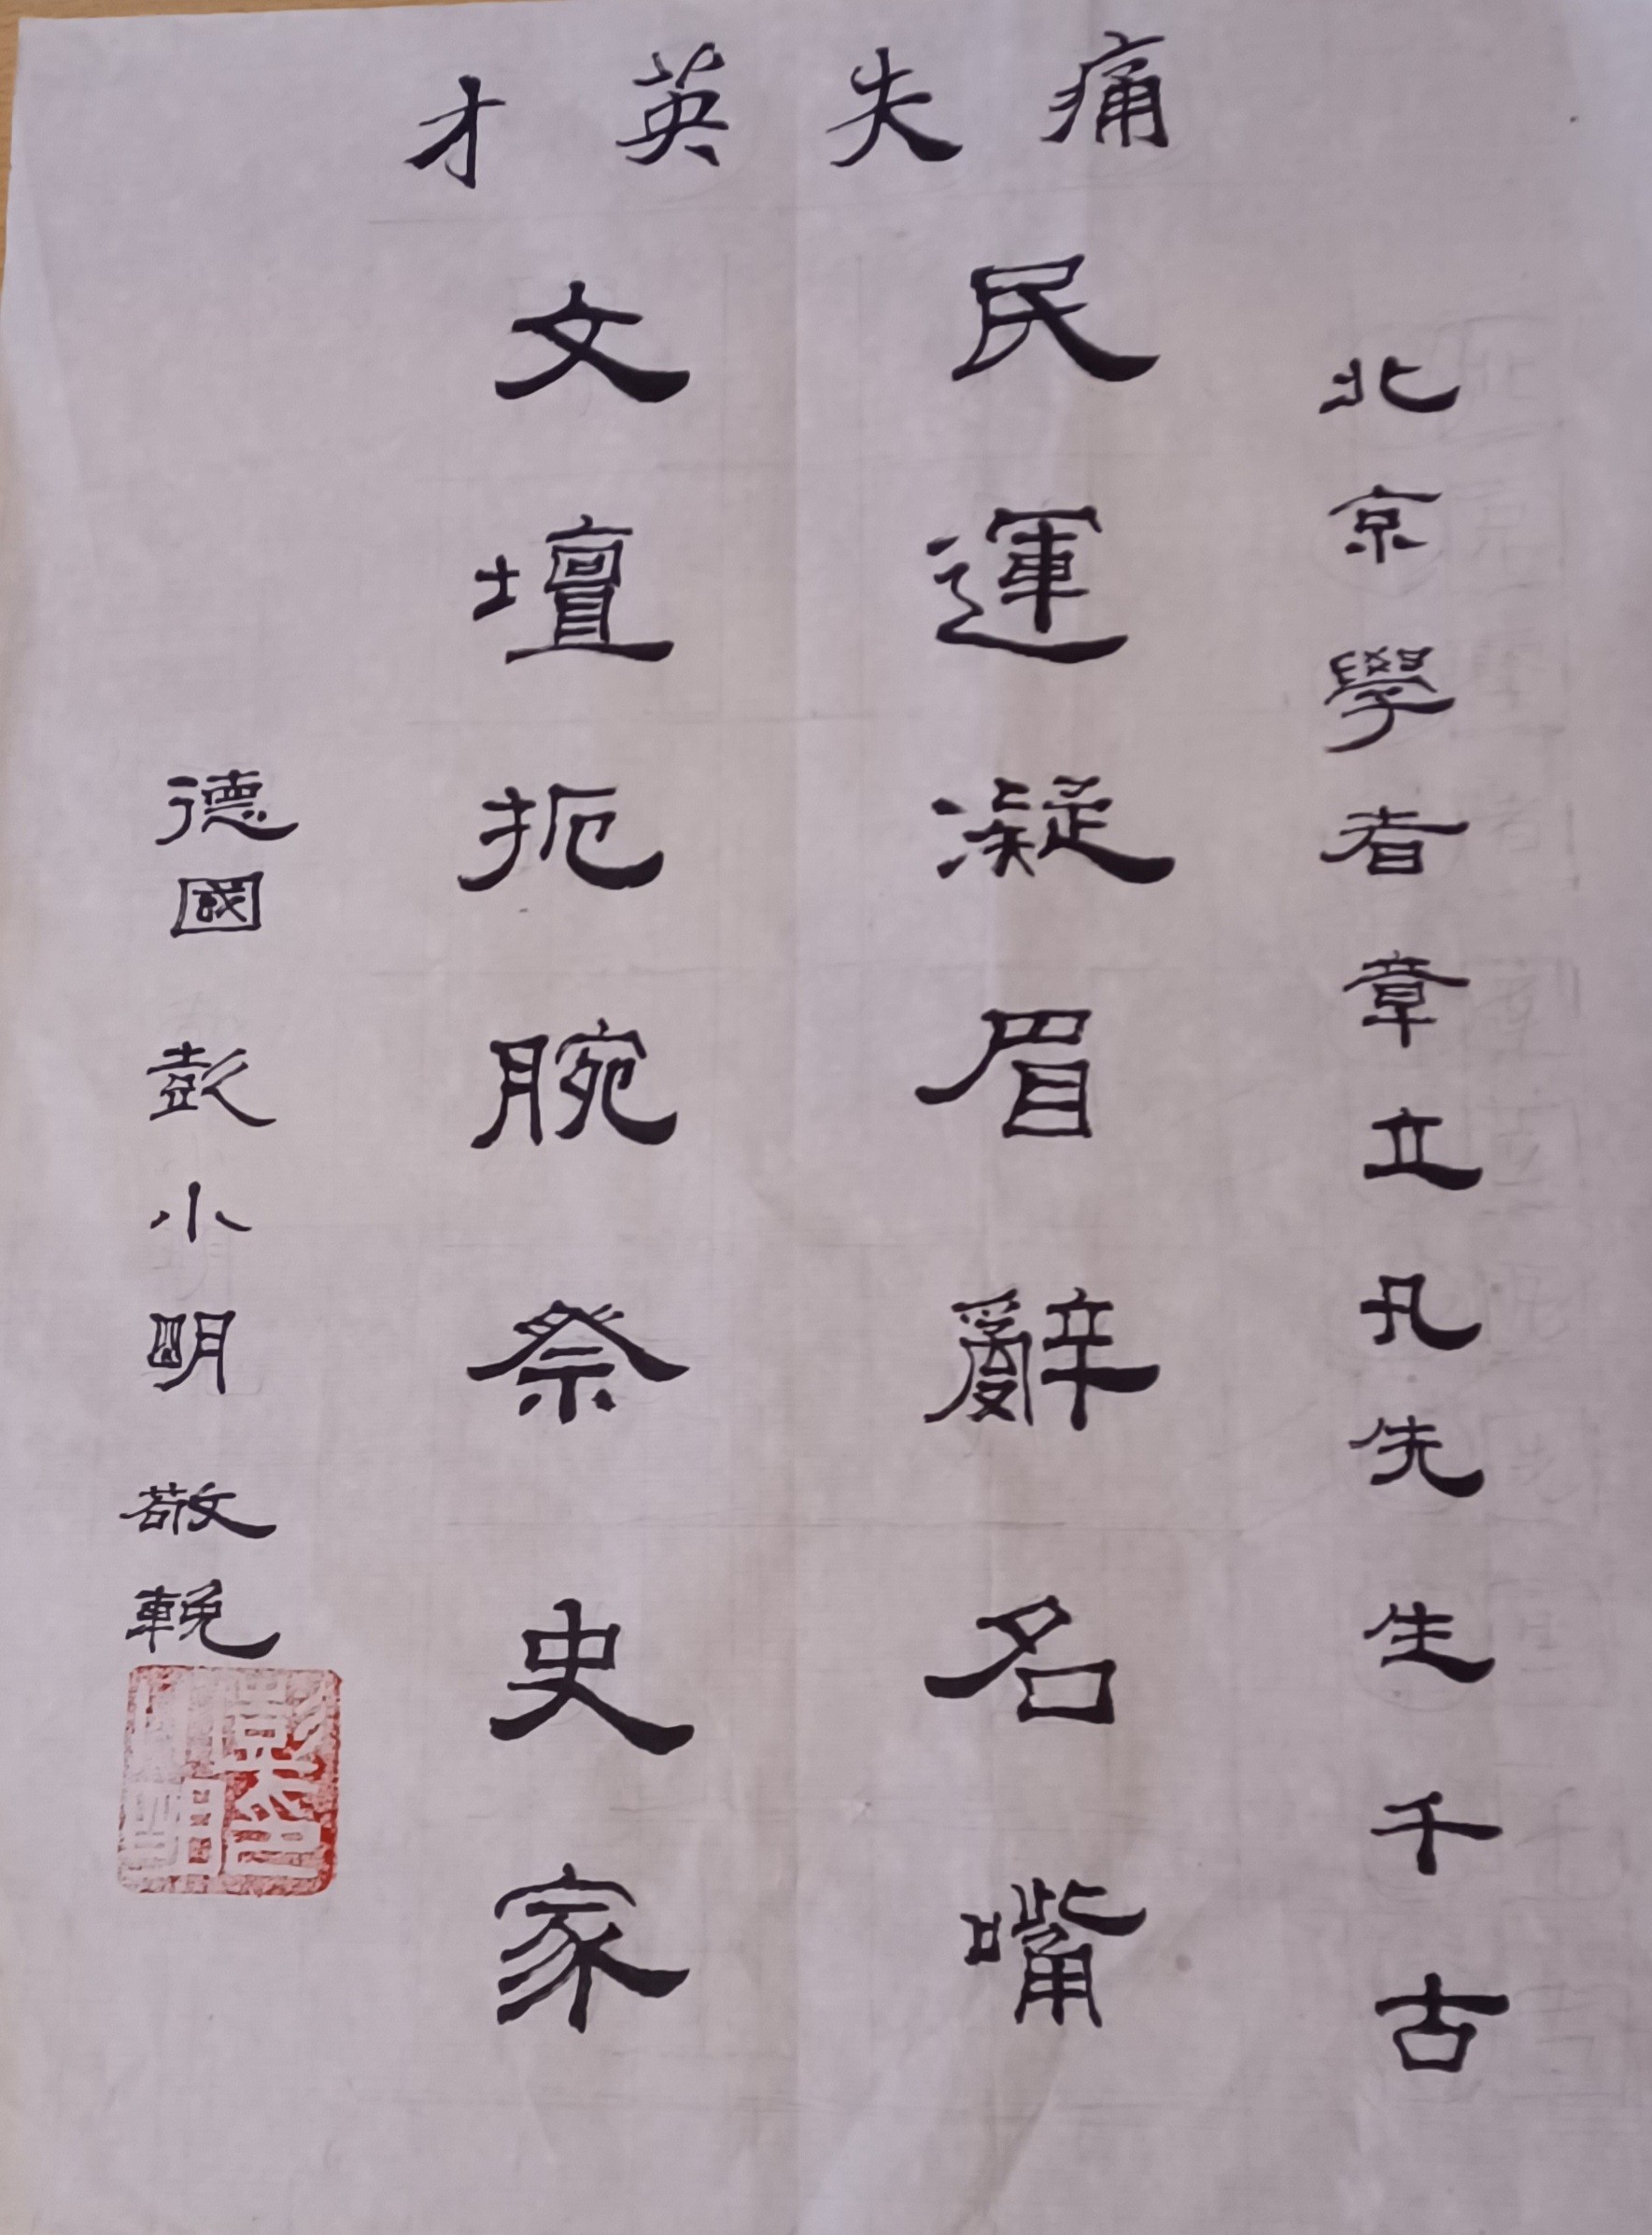 痛失英才
北京學者章立凡先生千古
民運凝眉辭名嘴
文壇扼腕祭史家
德國 彭小明 敬輓
彭小明印